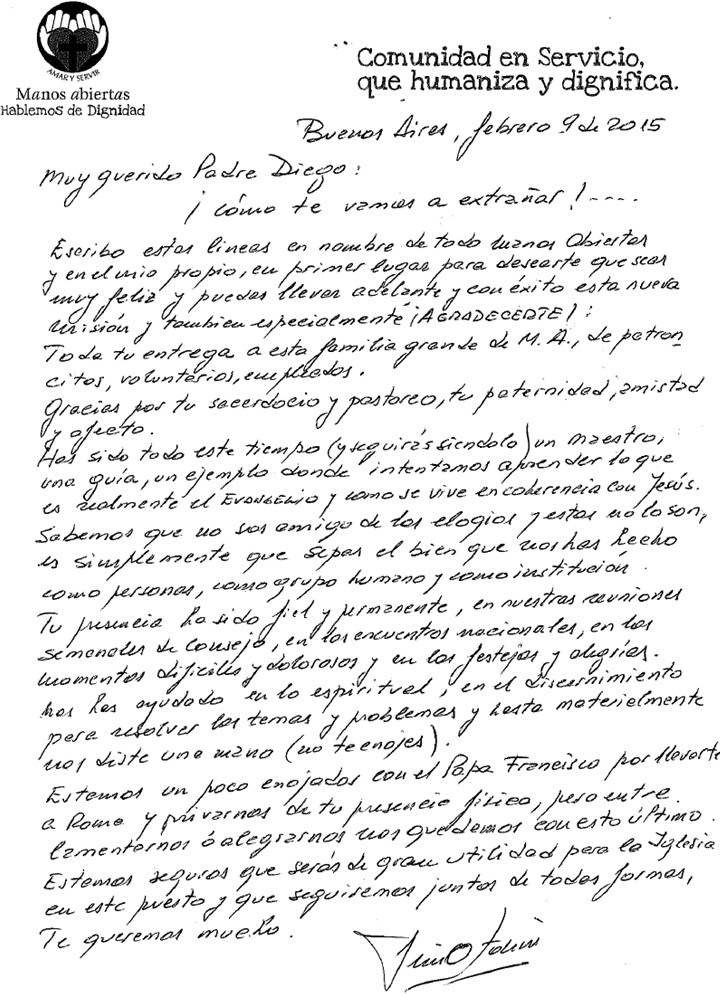 AMAR Y SERVIR
Manos abiertas
Hablemos de Dignidad
Comunidad en Servicio,
que humaniza y dignifica.
Buenos Aires, febrero 9 de 2015
Muy querido Padre Diego:
¡cómo te vamos a extrañar!....
Escribo estas líneas en nombre de todo Manos Abiertas
y en el mío propio, en primer lugar para desearte que seas
muy feliz y puedas llevar adelante y con éxito esta nueva
misión y también especialmente ¡AGRADECERTE!:
Toda tu entrega a esta familia grande de M.A., de patron
citos, voluntarios, empleados.
Gracias por tu sacerdocio y pastoreo, tu paternidad, amistad
y afecto.
Has sido todo este tiempo (y seguirás siendolo) un maestro,
una guía, un ejemplo donde intentamos aprender lo que
es realmente el EVANGELIO y como se vive en coherencia con Jesús.
Sabemos que no sos amigo de los elogios y estos no lo son,
es simplemente que sepas el bien que nos has hecho
como personas, como grupo humano y como institución.
Tu presencia ha sido fiel y permanente, en nuestras reuniones
semanales de Consejo, en los encuentros nacionales, en los
momentos difíciles y dolorosos y en los festejos y alegrías.
Nos has ayudado en lo espiritual, en el discernimiento
para resolver los temas y problemas y hasta materialmente
nos diste una mano (no te enojes).
Estamos un poco enojados con el Papa Francisco por llevarte
a Roma y privarnos de tu presencia física, pero entre
lamentarnos ó alegrarnos nos quedamos con esto último.
Estamos seguros que serás de gran utilidad para la Iglesia
en este puesto y que seguiremos juntos de todas formas,
Te queremos mucho.